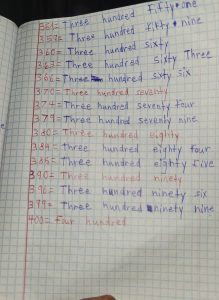 351= Three hundred fifty-one
359= Three hundred fifty nine
360= Three hundred sixty
363= Three hundred sixty Three
366= Three hundred sixty six
370= Three hundred seventy
374= Three hundred seventy four
379= Three hundred seventy nine
380= Three hundred eighty
384= Three hundred eighty four
385= Three hundred eighty five
390= Three hundred ninety
396= Three hundred ninety six
399= Three hundred ninety nine
400= Four hundred